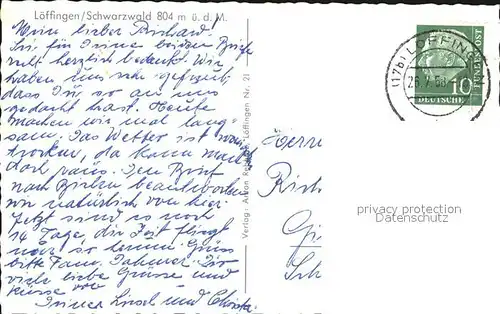 Löffingen/Schwarzwald 804 m ü. d. M.
Mein lieber Richard!
Sei für Deine beiden Briefe
recht herzlich bedankt. Wir
haben uns sehr gefreut
dass Du so an uns
gedacht hast. Heute
machen wir mal lang-
sam. Das Wetter ist
trocken, da kann man
doch raus. Den Brief
nach beantworten
wir natürlich von hier.
Jetzt sind es noch
14 Tage die Zeit fliegt
nur so herum. Grüss
bitte Fam. Dir
viele liebe Grüsse und
Küsse von
Deiner Liesel und
Verlag: Anton Löffingen Nr. 21
(17b) LÖFFINGEN
26.7.58
10
DEUTSCHE BUNDESPOST
Herrn
Rich
Gi
Sch
privacy protection
Datenschutz